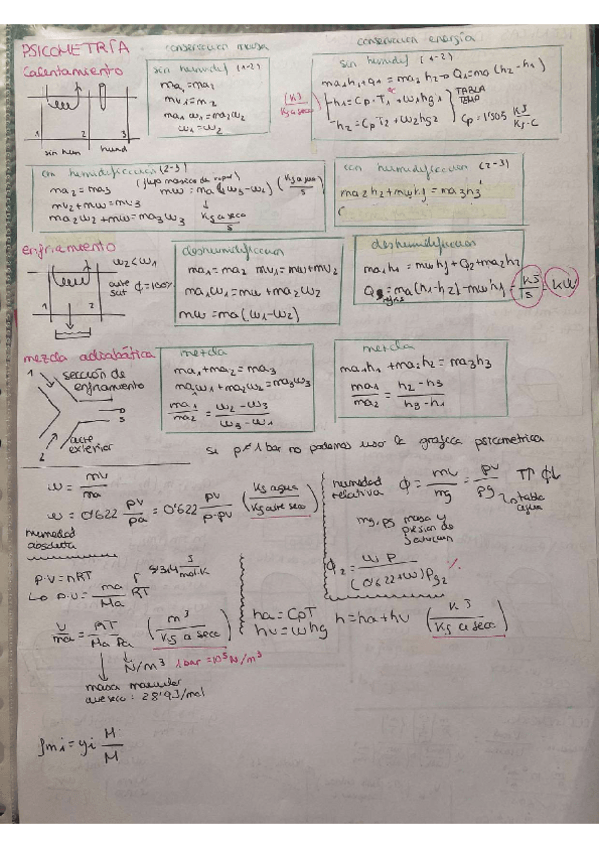 PSICOMETRÍA
conservacion masa
conservacion energía
Calentamiento
sin humidif (1-2)
ma1 = ma1
mv1 = m2
ma1 ω1 = ma2 ω2
ω1 = ω2
sin humidif (1-2)
ma1h1 + q1 = ma2 h2 → Q1 = ma (h2 - h1)
(KJ/Kg a seco)
h1 = Cp · T1 + ω1hg1
TABLA
h2 = CpT2 + ω2hg2
Cp = 1'005 KJ/Kg·C
1 2 3
sin hum humid
con humidificacion (2-3)
ma2 = ma3
(flujo masico de vapor)
mw = ma (ω3 - ω2) (Kg agua/s)
mv2 + mw = mv3
ma2ω2 + mw = ma3ω3
Kg a seco/s
con humidificacion (2-3)
ma2h2 + mwhg = ma3h3
enfriamiento
ω2 < ω1
aire sat ϕ = 100%
1 2
deshumidificacion
ma1 = ma2 mv1 = mw + mv2
ma1ω1 = mw + ma2ω2
mw = ma (ω1 - ω2)
deshumidificacion
ma1h1 = mwhf + Q2 + ma2h2
Q = ma (h1 - h2) - mwhf = KJ/s = KW
mezcla adiabática
1
sección de
enfriamiento
3
2
aire
exterior
mezcla
ma1 + ma2 = ma3
ma1ω1 + ma2ω2 = ma3ω3
ma1/ma2 = ω2 - ω3/ω3 - ω1
mezcla
ma1h1 + ma2h2 = ma3h3
ma1/ma2 = h2 - h3/h3 - h1
si p≠1 bar no podemos usar la grafica psicometrica
ω = mv/ma
ω = 0'622 pv/pa = 0'622 pv/p-pv (Kg agua/Kg aire seco)
humedad
absoluta
humedad
relativa
ϕ = mv/mg = pv/pg T↑ ϕ↓
tabla
agua
mg, pg masa y
presion de
saturacion
ϕ2 = ω P/(0'622+ω)Pg2 %
P·V = nRT
8'314 J/mol·K
↳ P·V = ma/Ma RT
V/ma = RT/Ma Pa (m³/Kg a seco)
N/m³ 1 bar = 10⁵ N/m³
masa molecular
aire seco: 28'9 J/mol
ha = CpT
hv = ωhg
h = ha + hv (KJ/Kg a seco)
fmi = yi M/M